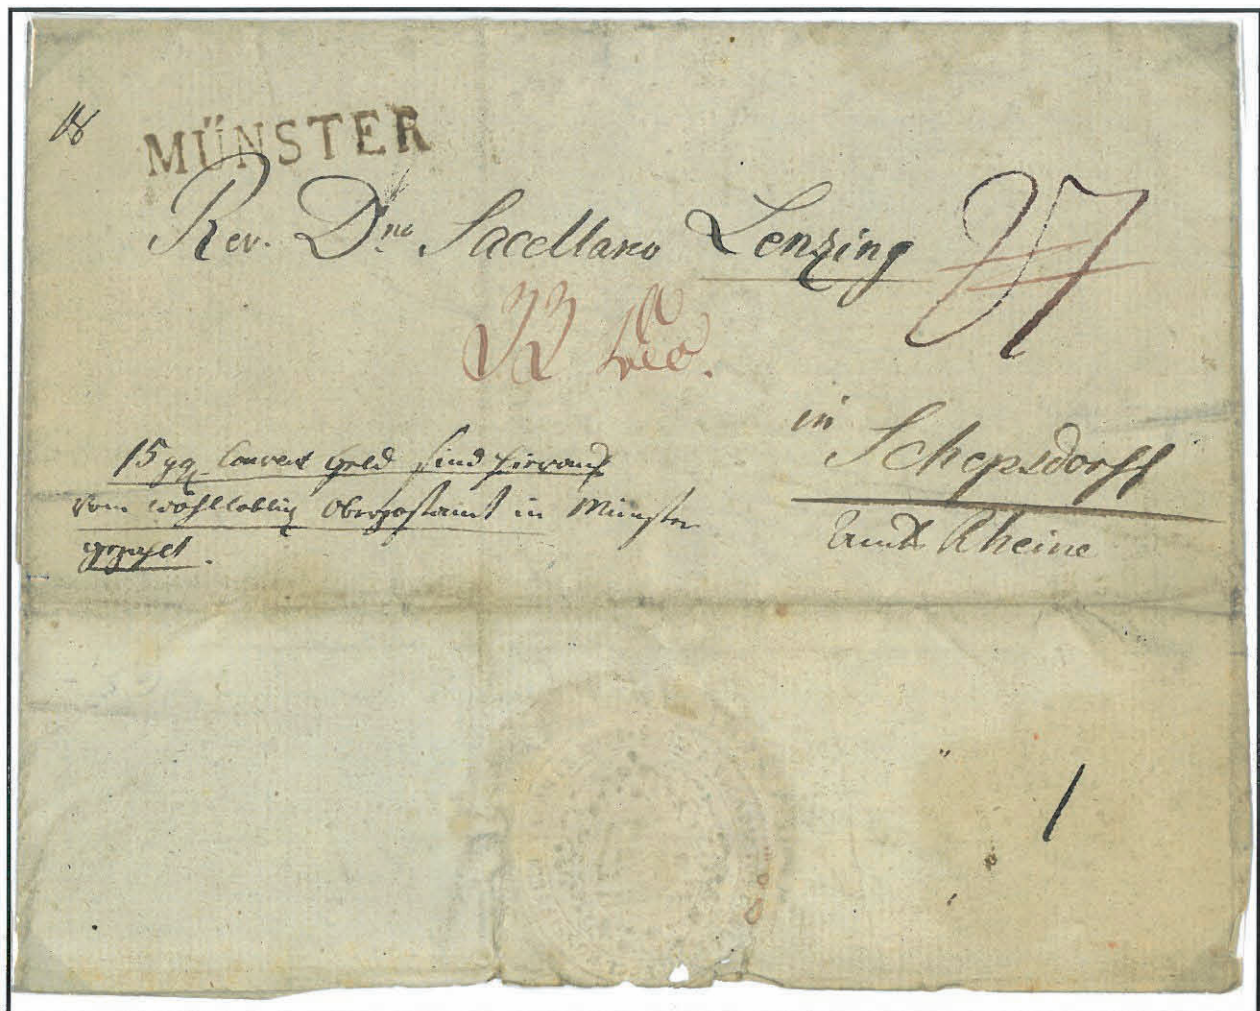 18
MÜNSTER
Rev. Dno Sacellano Lenzing
in
Schepsdorff
Amts Rheine
15 ggl. Courant Geld sind hierauf
vom wohllöblig Oberpostamt in Münster
gezahlt.
1